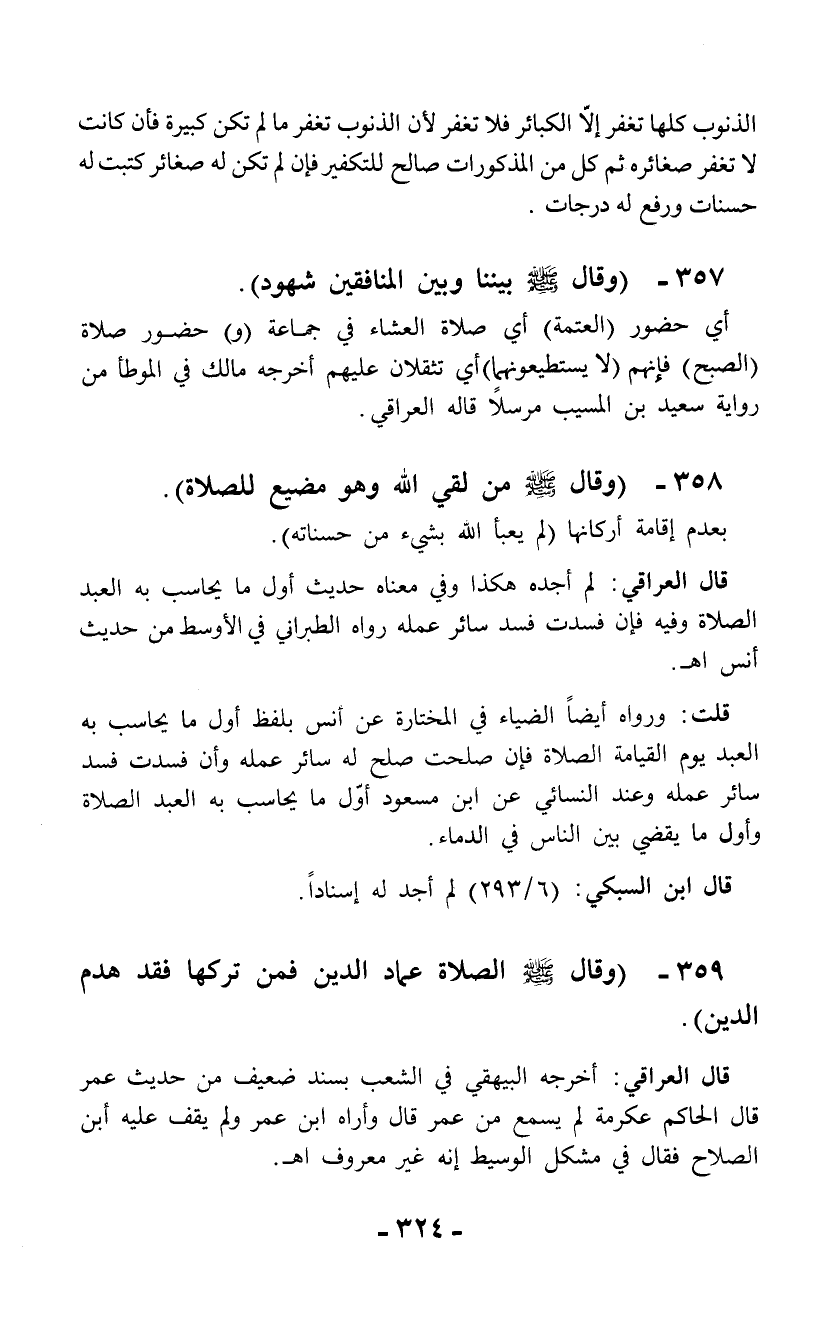 الذنوب كلها تغفر إلاّ الكبائر فلا تغفر لأن الذنوب تغفر ما لم تكن كبيرة فأن كانت
لا تغفر صغائره ثم كل من المذكورات صالح للتكفير فإن لم تكن له صغائر كتبت له
حسنات ورفع له درجات .
٣٥٧ - (وقال ﷺ بيننا وبين المنافقين شهود).
أي حضور (العتمة) أي صلاة العشاء في جماعة (و) حضور صلاة
(الصبح) فإنهم (لا يستطيعونهما) أي تثقلان عليهم أخرجه مالك في الموطأ من
رواية سعيد بن المسيب مرسلاً قاله العراقي.
٣٥٨ - (وقال ﷺ من لقي الله وهو مضيع للصلاة).
بعدم إقامة أركانها (لم يعبأ الله بشيء من حسناته).
قال العراقي: لم أجده هكذا وفي معناه حديث أول ما يحاسب به العبد
الصلاة وفيه فإن فسدت فسد سائر عمله رواه الطبراني في الأوسط من حديث
أنس اهـ.
قلت: ورواه أيضاً الضياء في المختارة عن أنس بلفظ أول ما يحاسب به
العبد يوم القيامة الصلاة فإن صلحت صلح له سائر عمله وأن فسدت فسد
سائر عمله وعند النسائي عن ابن مسعود أوّل ما يحاسب به العبد الصلاة
وأول ما يقضي بين الناس في الدماء.
قال ابن السبكي: (٢٩٣/٦) لم أجد له إسناداً.
٣٥٩ - (وقال ﷺ الصلاة عماد الدين فمن تركها فقد هدم
الدين).
قال العراقي: أخرجه البيهقي في الشعب بسند ضعيف من حديث عمر
قال الحاكم عكرمة لم يسمع من عمر قال وأراه ابن عمر ولم يقف عليه أبن
الصلاح فقال في مشكل الوسيط إنه غير معروف اهـ.
- ٣٢٤ -